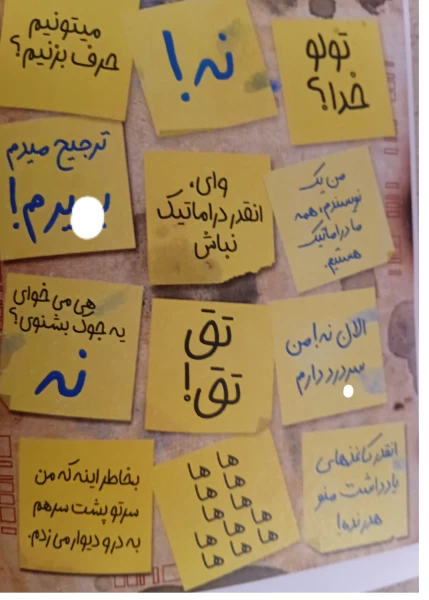 میتونیم
حرف بزنیم؟
نه!
تولو
خدا؟
ترجیح میدم
وای،
انقدر دراماتیک
نباش
من یک
نویسندم، همه
ما دراماتیک
هستیم.
هی می خوای
یه جوک بشنوی؟
نه
تق
تق!
الان نه! من
سردرد دارم
بخاطر اینه که من
سرتو پشت سرهم
به در و دیوار می زدم.
ها
ها ها
ها ها
ها ها ها
ها ها ها
ها
انقدر کاغذهای
یادداشت منو
هدر نده!